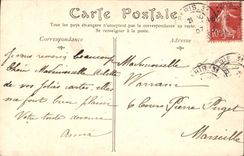 Carte Postale
Tous les pays étrangers n'acceptent pas la correspondance au recto.
Se renseigner à la poste.
Correspondance
Je vous remercie beaucoup
Chère Mademoiselle
de vos jolies cartes, elles
m'a font bien plaisir
Votre toute dévouée
Anna
Mademoiselle
Warrain
6 Cours Pierre Puget
Marseille
10